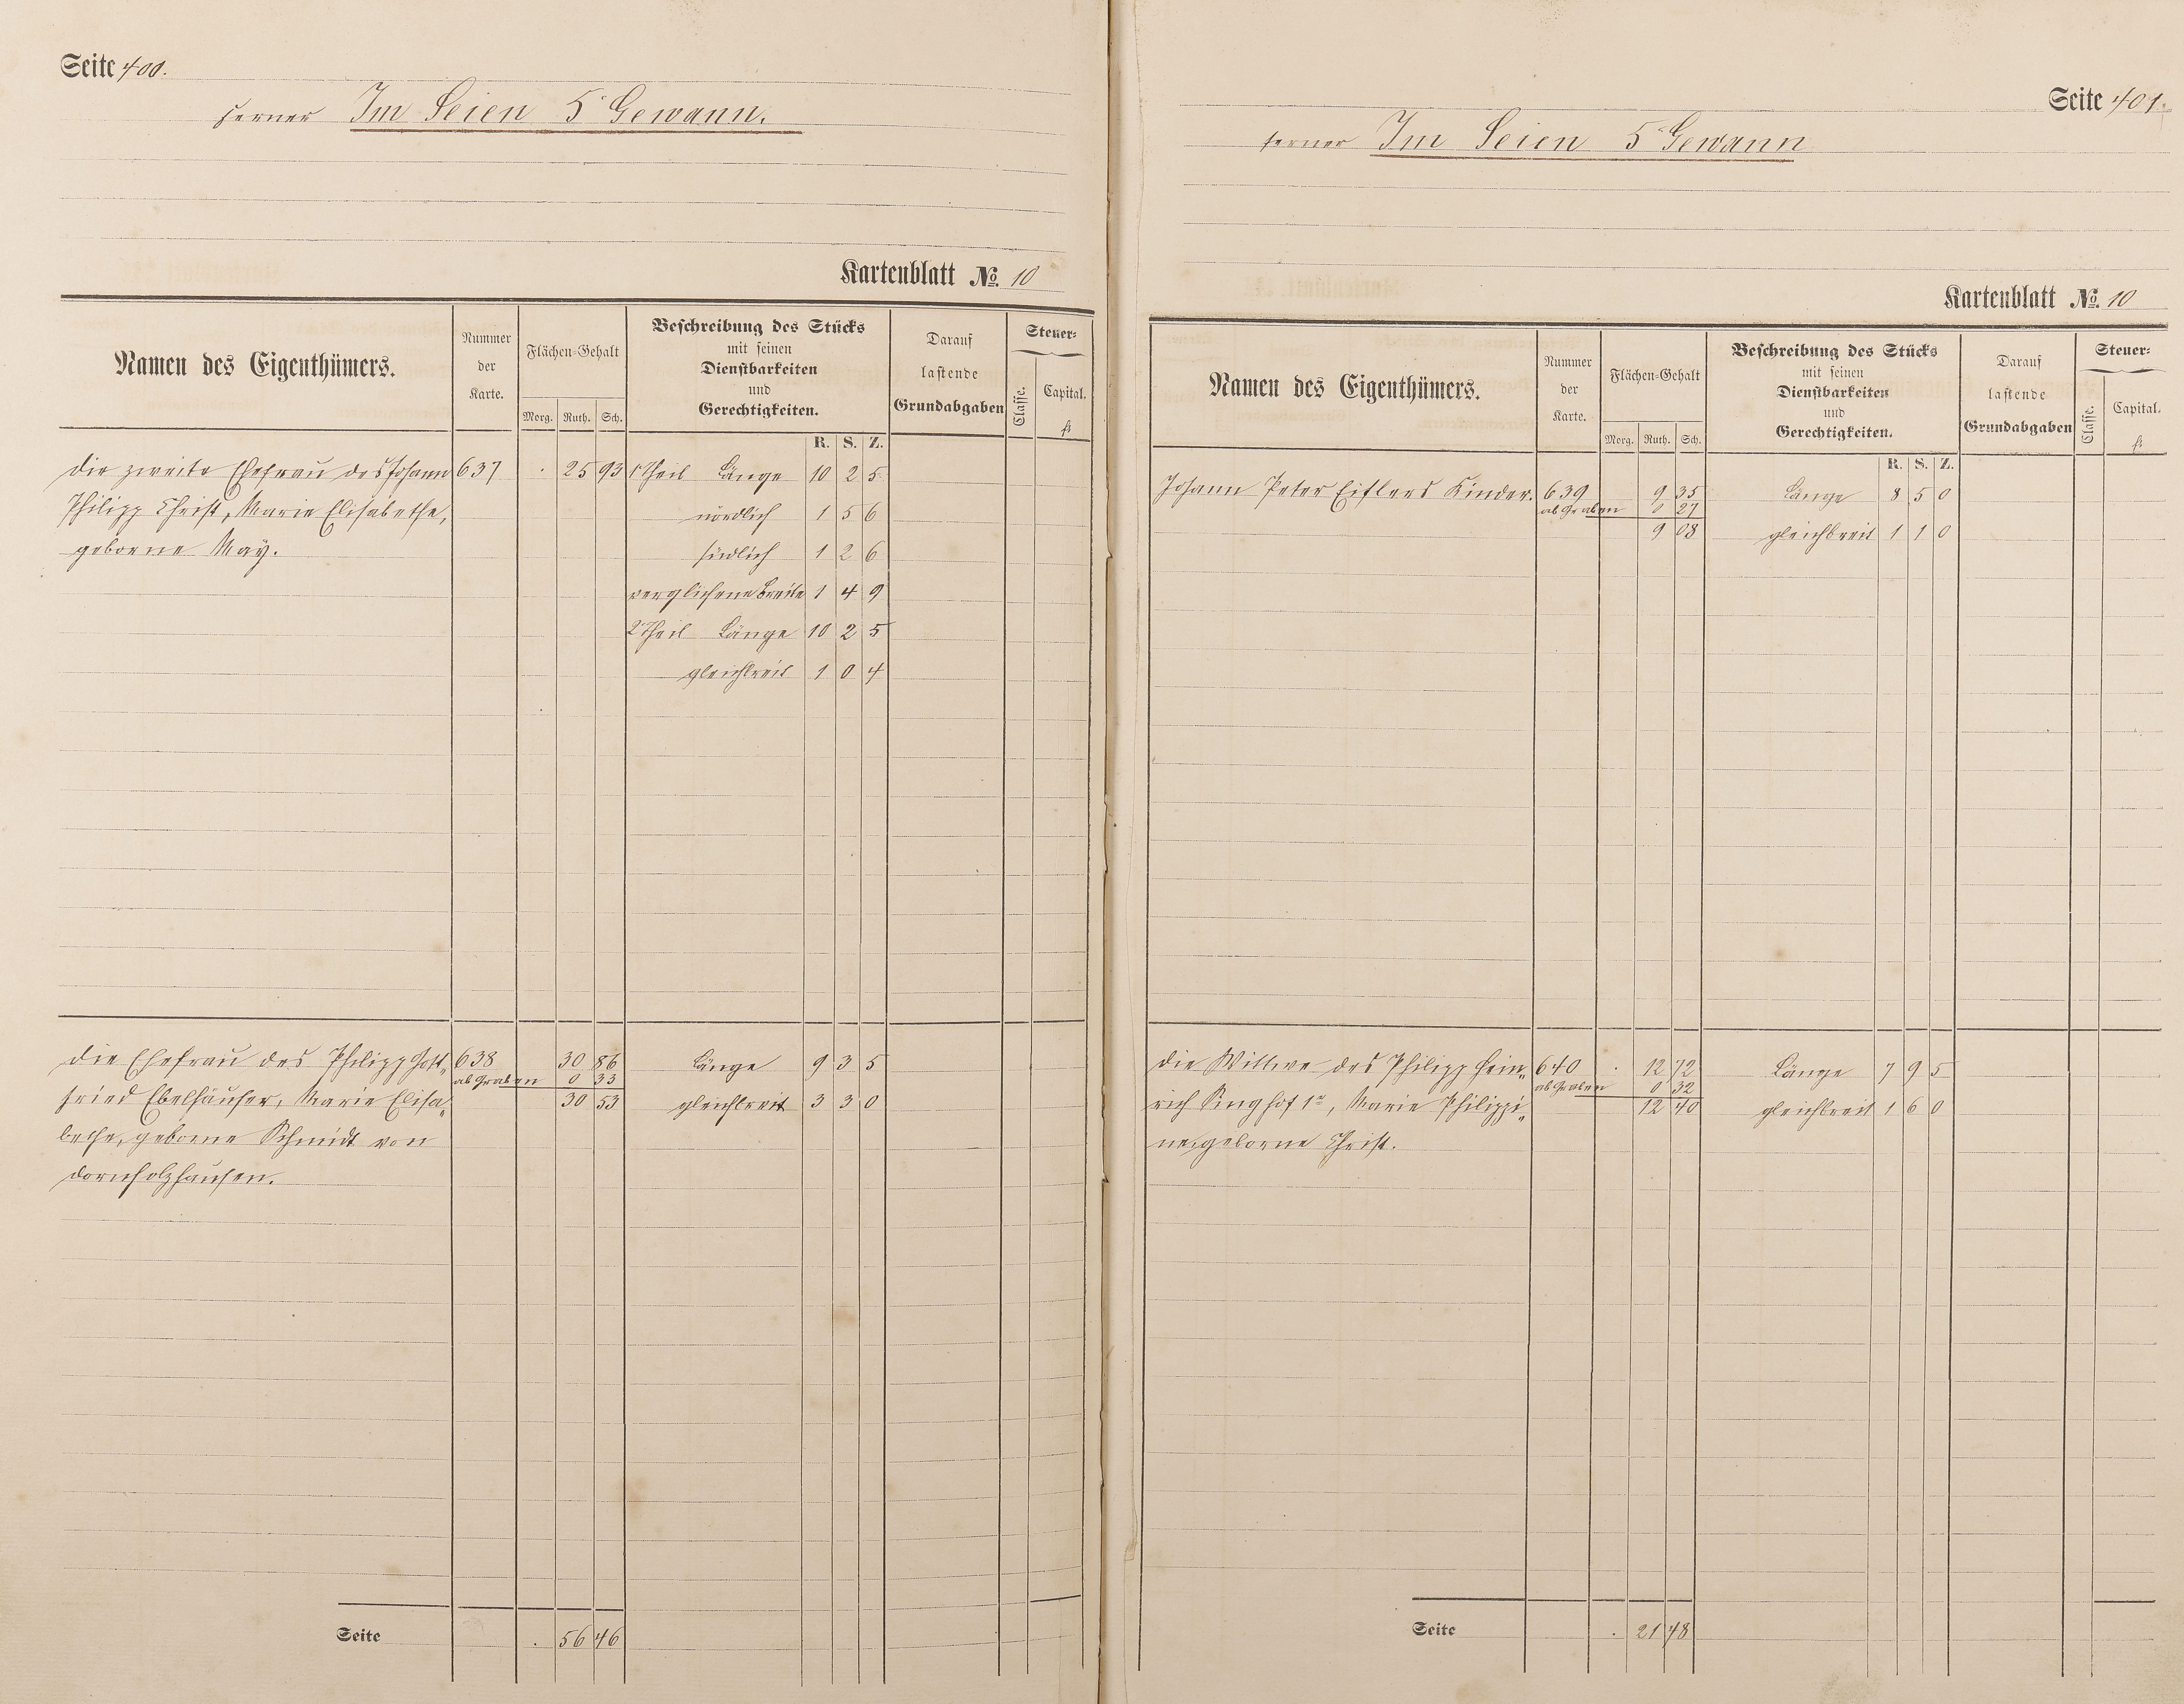 Seite 400.
ferner Im Seien 5r Gewann.
Kartenblatt No. 10
Namen des Eigenthümers.
Nummer der Karte.
Flächen-Gehalt
Morg. Ruth. Sch.
Beschreibung des Stücks
mit seinen
Dienstbarkeiten
und
Gerechtigkeiten.
Darauf
lastende
Grundabgaben
Steuer-
Classe. Capital.
fl
R. S. Z.
die zweite Ehefrau des Johann 637 . 25 93 1r Theil Länge 10 2 5
Philipp Christ, Marie Elisabethe, nördlich 1 5 6
geborene May. südlich 1 2 6
verglichene Breite 1 4 9
2r Theil Länge 10 2 5
gleichbreit 1 0 4
die Ehefrau des Philipp Gott„ 638 30 86 Länge 9 3 5
ab Graben 0 33
fried Ebelhäuser, Marie Elisa„ 30 53 gleichbreit 3 3 0
bethe, geborne Schmidt von
Dornholzhausen.
Seite . 56 46
Seite 401.
ferner Im Seien 5r Gewann
Kartenblatt No. 10
Namen des Eigenthümers.
Nummer der Karte.
Flächen-Gehalt
Morg. Ruth. Sch.
Beschreibung des Stücks
mit seinen
Dienstbarkeiten
und
Gerechtigkeiten.
Darauf
lastende
Grundabgaben
Steuer-
Classe. Capital.
fl
R. S. Z.
Johann Peter Eiflers Kinder. 639 9 35 Länge 8 5 0
ab Graben 0 27
9 08 gleichbreit 1 1 0
die Wittwe des Philipp Hein„ 640 . 12 72 Länge 7 9 5
ab Graben 0 32
rich Ringhof 1r, Marie Philippi„ 12 40 gleichbreit 1 6 0
ne, geborne Christ.
Seite . 21 48